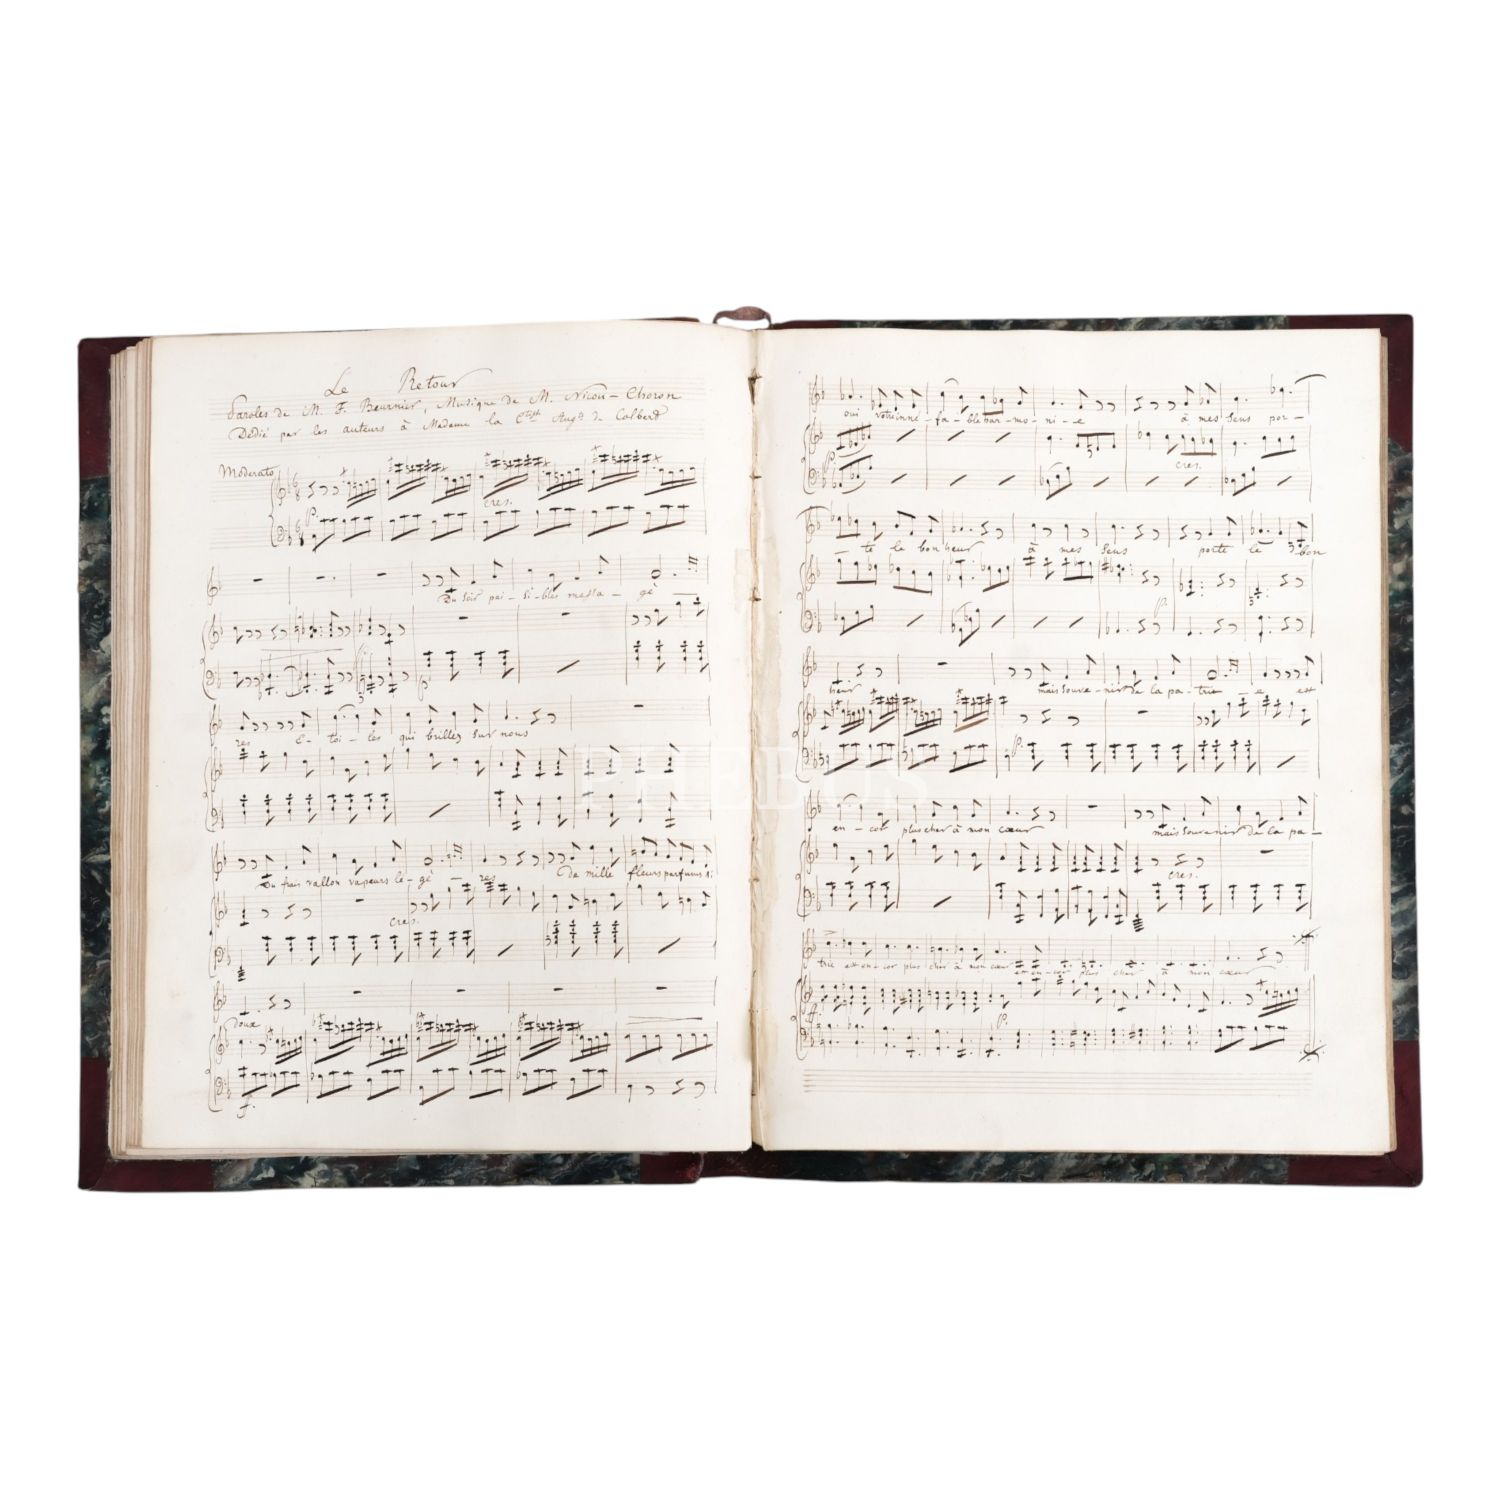 Le Retour
Paroles de M. F. Beurnier, Musique de M. Nicou-Choron
Dédié par les auteurs à Madame la Ctesse Augte de Colbert
Moderato
cres.
Du soir pai-si-bles messa-gè-
res é-toi-les qui brillez sur nous
Du frais vallon vapeurs lé-gè-res de mille fleurs parfums
cres.
doux
f.
oui votre inné-fa-ble har-mo-ni-e à mes sens por-
cres.
-te le bonheur à mes sens porte le bon
p.
heur mais souve-nir de la pa-tri-e est
p.
en-cor plus cher à mon cœur mais souvenir de la pa-
cres.
trie est en-cor plus cher à mon cœur est en-cor plus cher à mon cœur
ff. p.
PHEBUS